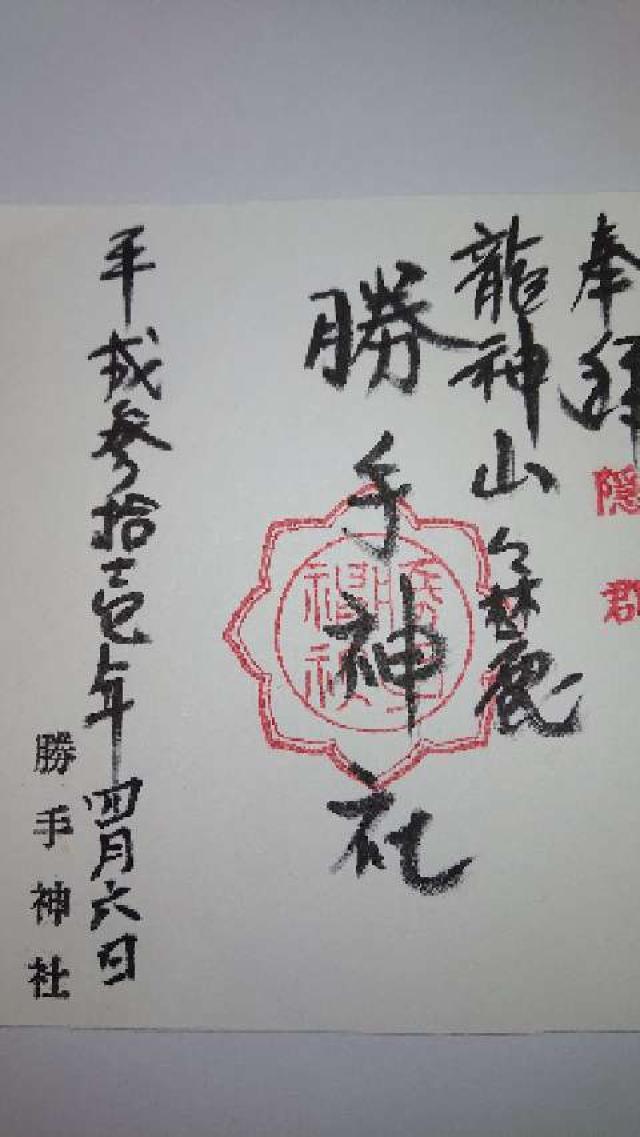 奉拝
隠 郡
龍神山麓
勝手神社
勝手神社
平成参拾壱年四月六日
勝手神社